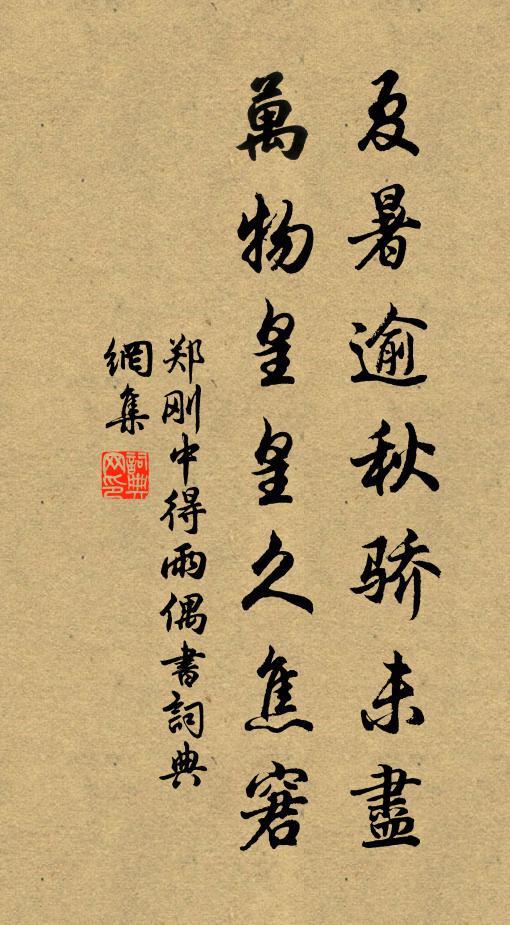 夏暑逾秋骄未盡
萬物皇皇久焦窘
郑刚中得雨偶書詞典
網集
詞典
网印